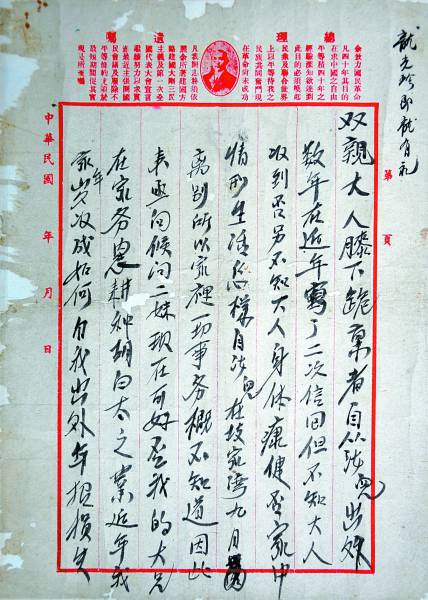 總理遺囑
余致力國民革命
凡四十年其目的
在求中國之自由
平等積四十年之
經驗深知欲達到
此目的必須喚起
民眾及聯合世界
上以平等待我之
民族共同奮鬥現
在革命尚未成功
凡我同志務須依
照余所著建國方
略建國大綱三民
主義及第一次全
國代表大會宣言
繼續努力以求貫
澈最近主張開國
民會議及廢除不
平等條約尤須於
最短期間促其實
現是所至囑
第 頁
双親大人膝下跪稟者自从兒出外
数年在近年寫了二次信回但不知大人
收到否另不知大人身体康健否家中
情形生活怎樣自兒在家灣九月
离别所以家裡一切事务概不知道因此
来兴问候问二妹现在可好否我的大兄
在家务農耕种胡白太之業近年我
家年岁收成如何自我出外年損失
中華民國 年 月 日